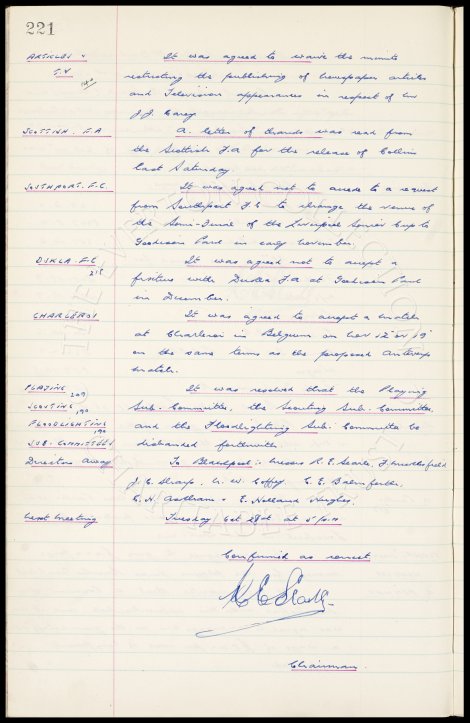 221
ARTICLES &
T.V
It was agreed to waive the minute
restricting the publishing of newspaper articles
and Television appearances in respect of Mr
J.J. Carey.
SCOTTISH. F.A
A letter of thanks was read from
the Scottish F.A for the release of Collins
last Saturday.
SOUTHPORT. F.C.
It was agreed not to accede to a request
from Southport F.C. to change the venue of
the Semi-Final of the Liverpool Senior Cup to
Goodison Park in early November.
DUKLA. F.C
218
It was agreed not to accept a
fixture with Dukla F.C at Goodison Park
in December.
CHARLEROI
It was agreed to accept a match
at Charleroi in Belgium on Nov 12 or 19
on the same terms as the proposed Antwerp
match.
PLAYING 209
SCOUTING 190
FLOODLIGHTING 190
SUB. COMMITTEES
It was resolved that the Playing
Sub. Committee, the Scouting Sub. Committee,
and the Floodlighting Sub. Committee be
disbanded forthwith.
Directors Away
To Blackpool :- Messrs R.E. Searle, F. Micklesfield
J.C. Sharp, W. Coffey, C.E. Balmforth,
C.H. Askham & E. Holland Hughes.
Next Meeting
Tuesday Oct 28th at 5 p.m
Confirmed as correct
Chairman.